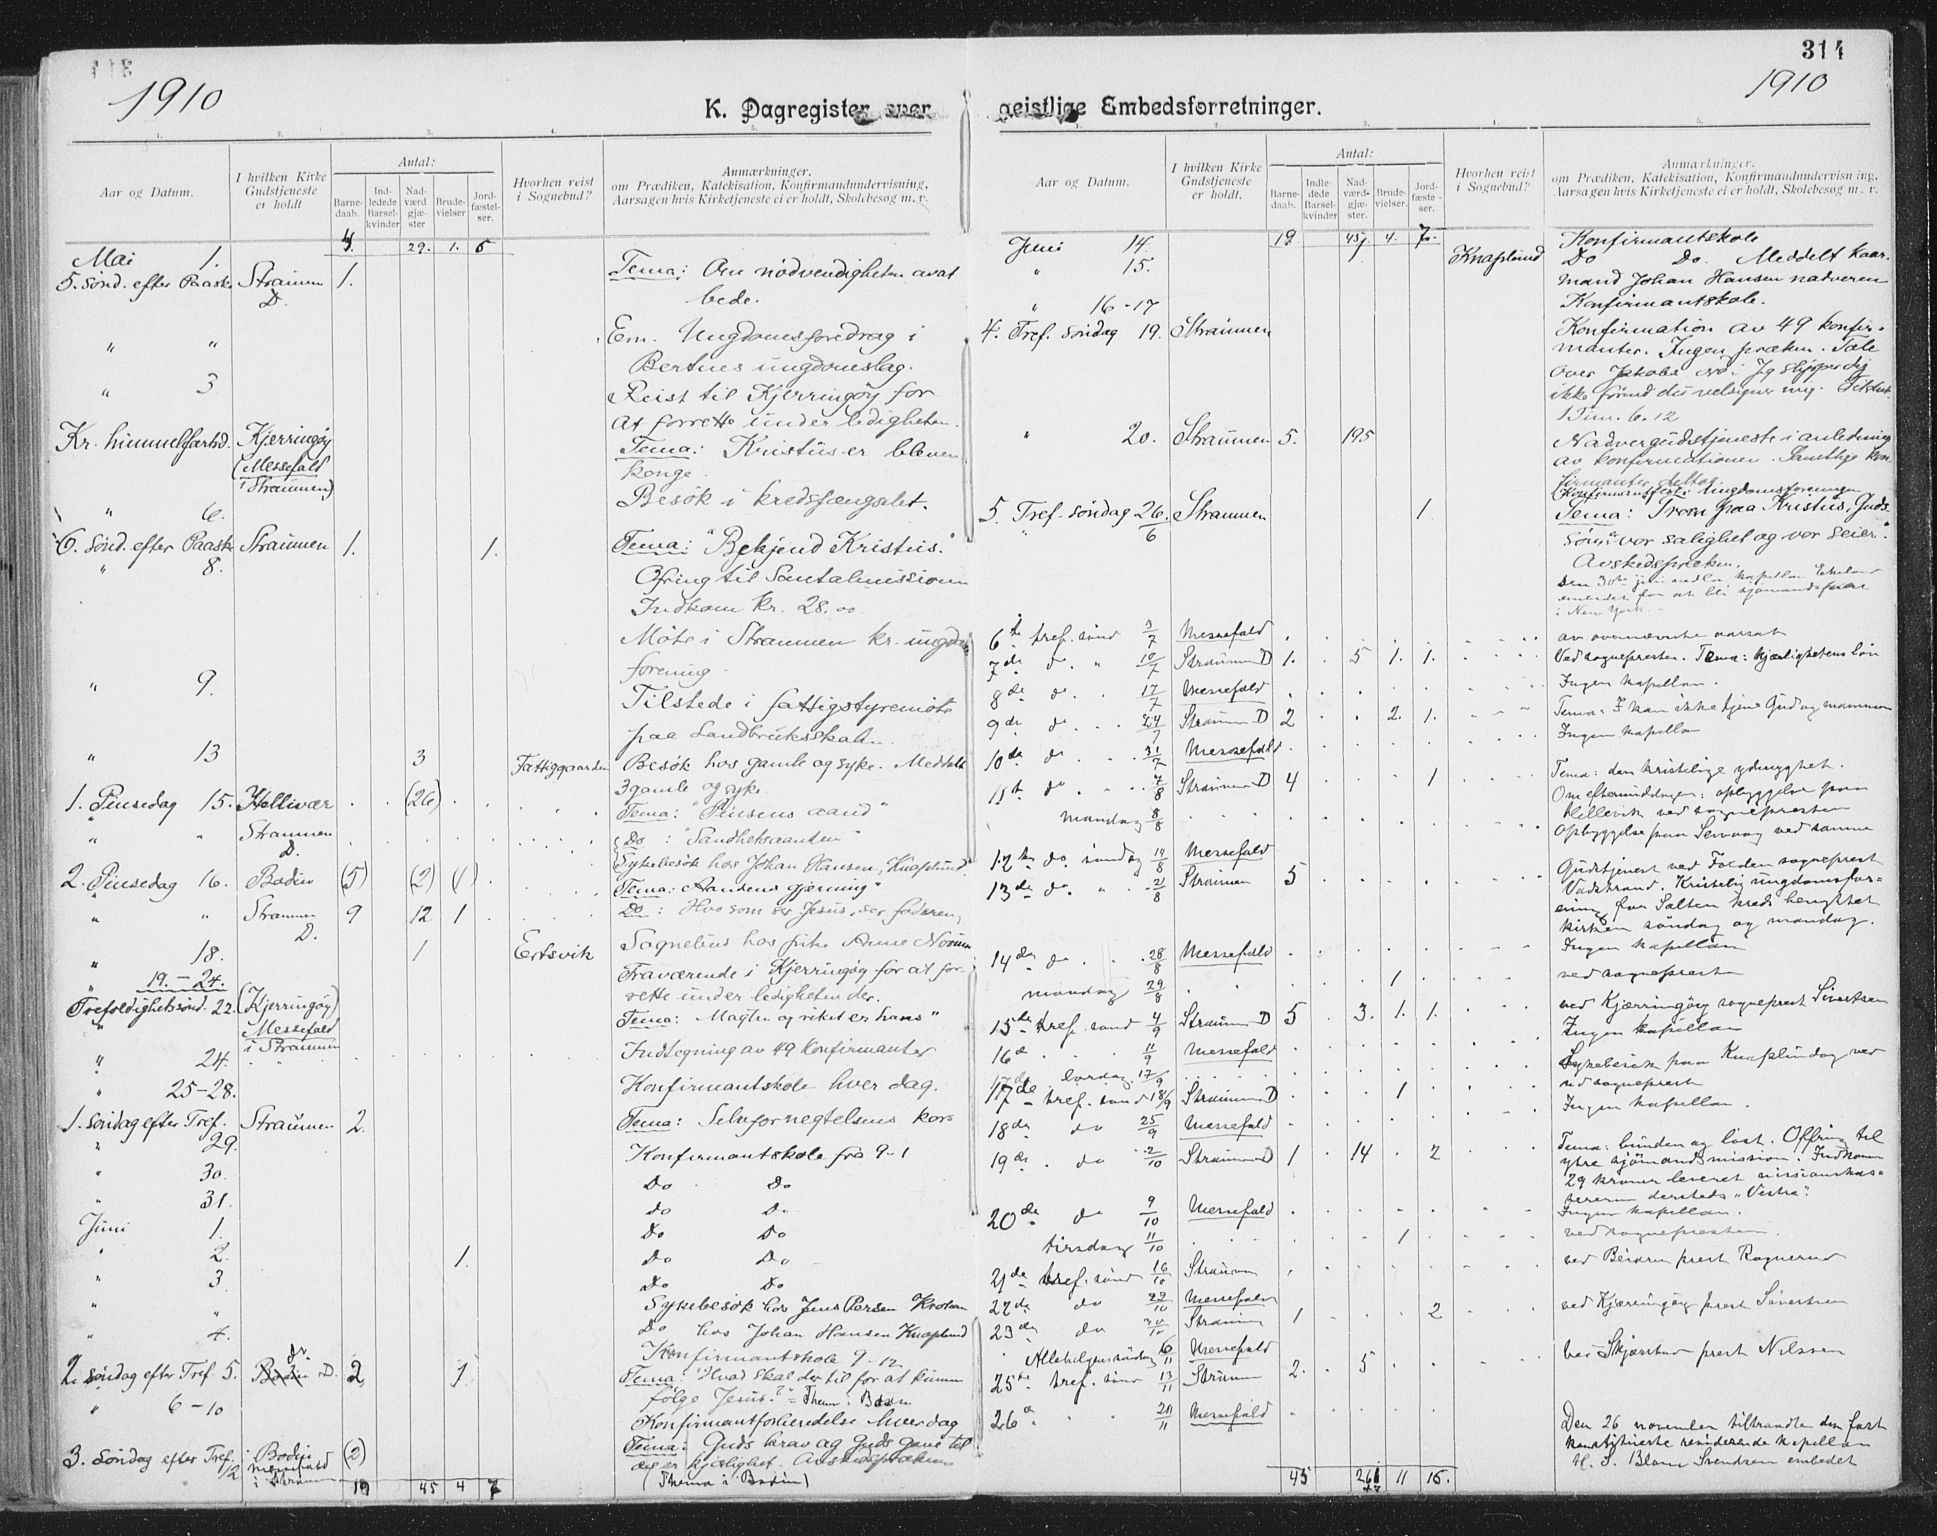 314
1910
1910
K. Dagregister over geistlige Embedsforretninger.
Aar og Datum.
I hvilken Kirke Gudstjeneste er holdt
Antal:
Barne-daab.
Ind-ledede Barsel-kvinder
Nad-værd gjæ-ster
Brude-vielser
Jord-fæstel-ser.
Hvorhen reist i Sognebud?
Anmærkninger,
om Prædiken, Katekisation, Konfirmandundervisning,
Aarsagen hvis Kirketjeneste ei er holdt, Skolebesøg m. v.
29. 1. 5
Mai 1.
5. sønd. efter Paaske Straumen D. 1. Tema: Om nødvendigheten av at
bede.
" " Em. Ungdomsforedrag i
Bertnes ungdomslag.
" 3 Reist til Kjerringøy for
at forrette under ledigheten.
Kr. himmelfartsd. Kjerringøy Tema: Kristus er bleven
(Messefald i Straumen) konge.
" 6. Besøk i kredsfængslet.
6. sønd. efter Paaske Straumen 1. 1. Tema: "Bekjend Kristus."
" 8. Ofring til Santalmissionen
Indkom kr. 28.00.
Møte i Straumen kr. ungdoms
forening.
" 9. Tilstede i fattigstyremøte
paa Landbruksskolen.
" 13 3 Fattiggaarden Besøk hos gamle og syke. Meddelt
3 gamle og syke.
1. Pinsedag 15. Helligvær (26) Tema: "Pinsens aand"
" " Straumen D. Do : "Sandhetsaanden"
Sykebesøk hos Johan Hansen, Knaplund
2. Pinsedag 16. Bodin (5) (2) (1) Tema: "Aandens gjerning"
" " Straumen D. 9 12 1 Do : Hvo som ser Jesus, ser faderen,
" 18. 1 Ertsvik Sognebud hos frk. Anne
" 19.-24. Fraværende i Kjerringøy for at for-
rette under ledigheten der.
Trefoldighetssønd. 22. (Kjerringøy) Tema: Magten og riket er hans"
Messefald i Straumen
" 24. Indtegning av 49 konfirmanter
" 25-28. Konfirmantskole hver dag.
1. søndag efter Tref. Straumen 2. Tema: Selvfornegtelsens kors
" 29.
" 30. Konfirmantskole fra 9-1
" 31. Do Do
Juni 1. Do Do
" 2. 1. Do Do
" 3 Do Do
" " Sykebesøk hos Jens Persen
" 4. Do hos Johan Hansen Knaplund
Konfirmantskole 9-12
2. søndag efter Tref. 5. Bodin D. 2 1 Tema: "Hvad skal der til for at kunne
følge Jesus?" = Thema i Bodin
" 6-10 Konfirmantforberedelse hver dag
3. søndag efter Tref. 12 Bodin (2) Tema: Guds krav og Guds gave til
messefald i Straumen os er kjærlighet. Avskedspræken
(Thema i Bodin)
19 45 4 7
Aar og Datum.
I hvilken Kirke Gudstjeneste er holdt.
Antal:
Barne-daab.
Indle-dede Barsel-kvinder
Nad-værd-gjæ-ster.
Brude-vielser.
Jord-fæste-ser.
Hvorhen reist i Sognebud?
Anmærkninger.
om Prædiken, Katekisation, Konfirmandundervisning,
Aarsagen hvis Kirketjeneste ei er holdt, Skolebesøg m. v.
19 45 4. 7.
Juni 14. Konfirmantskole
" 15. Knaplund Do Do. Meddelt kaar-
mand Johan Hansen nadveren
" 16-17 Konfirmantskole.
4. Tref. søndag 19. Straumen Konfirmation av 49 konfir-
manter. Ingen præken. Tale
over Jakobs ord: Jeg slipper dig
ikke førend du velsigner mig.
1 Tim. 6. 12
" 20. Straumen 5. 195 Nadvergudstjeneste i anledning
av konfirmationen. Samtlige kon-
firmanter deltog.
Konfirmantfest i Ungdomsforeningen
5. Tref. søndag 26/6. Straumen 1 Tema: Troen paa Kristus, Guds
søn: vor salighet og vor seier.
Avskedspræken.
Den 30te juni nedla kapellan
embedet for at bli sjømandsprest
i New York.
6te tref. sønd 3/7 Messefald av ovennævnte aarsak
7de do. " 10/7 Straumen D 1. 5 1. 1. Ved sognepresten. Tema: Kjærlighetens løn
8de do. 17/7 Messefald Ingen kapellan.
9de do. 24/7 Straumen D 2 2. 1. Tema: I kan ikke tjene Gud og mammon
10de do 31/7 Messefald Ingen kapellan
11te do. 7/8 Straumen D 4 1 Tema: den kristelige ydmyghet.
Om eftermiddagen: opbyggelse paa
ved sognepresten
mandag 8/8 Opbyggelse paa ved samme
12te do. søndag 14/8 Messefald
13de do. " 21/8 Straumen 5 Gudstjenest ved Folden sogneprest
Kristelig ungdomsfor-
ening for Salten kreds benyttet
kirken søndag og mandag.
14de do. 28/8 Messefald Ingen kapellan
mandag 29/8 1 ved sogneprest
15de tref. sønd 4/9 Straumen D 5 3. 1. 1. ved Kjærringøy sogneprest Sivertsen
16de 11/9 Messefald Ingen kapellan
17de lørdag 17/9 Sykebesøk paa Knaplund ved
17de tref. sønd 18/9 Straumen D 1 ved sogneprest
18de do 25/9 Messefald Ingen kapellan.
19de do 2/10 Straumen D 1 14 2 Tema: bunden og løst. Offring til
ytre sjømandsmission. Indkom
29 kroner leveret missionskas-
sereren dersteds
20de do 9/10 Messefald Ingen kapellan.
tirsdag 11/10 1 ved sognepresten
21de tref. sønd 16/10 Straumen ved Beiaren prest Rognerud
22de do 23/10 Messefald
23de do 30/10 Straumen 1 2 ved Kjærringøy prest Sivertsen
Allehelgenssøndag 6/11 Messefald
25de tref. sønd 13/11 Straumen 2. 5 ved Skjærstad prest Nilssen
26de 20/11 Messefald
Den 26 november tiltraadte den fast
konstituerte residerende kapellan
H. S. Blom Svendsen embedet
45 11 16.